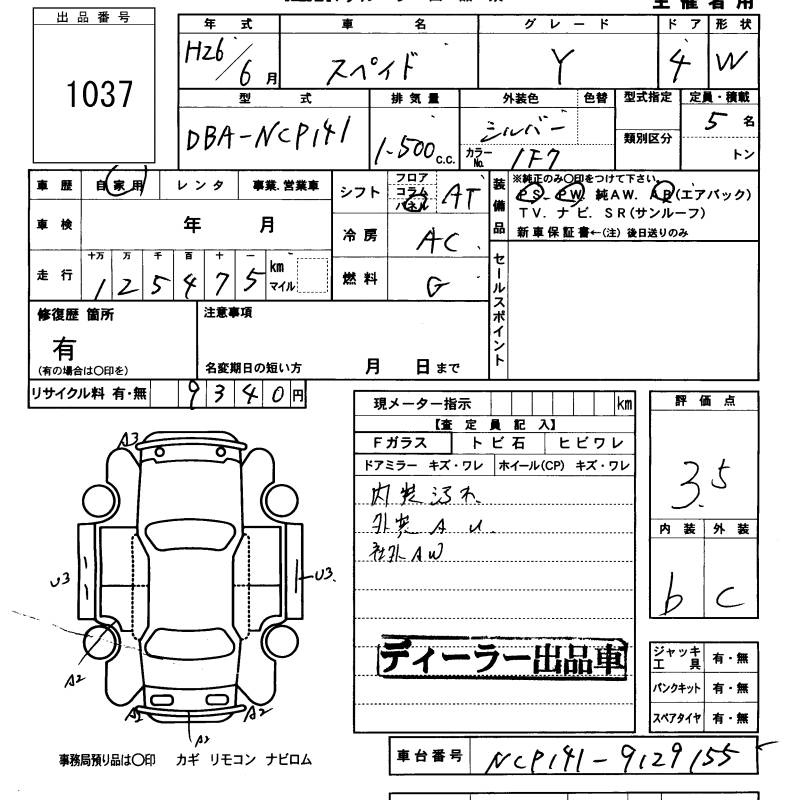 主催者用
出品番号
1037
年式 車名 グレード ドア 形状
H26/6月 スペイド Y 4 W
型式 排気量 外装色 色替 型式指定 定員・積載
DBA-NCP141 1-500c.c. シルバー 類別区分 5名
カラーNo. 1F7 トン
車歴 自家用 レンタ 事業.営業車
車検 年 月
走行 十万 万 千 百 十 一 km
125475 マイル
シフト フロア コラム パネル AT
冷房 AC
燃料 G
装備品
※純正のみ○印をつけて下さい。
PS. PW. 純AW. AB(エアバック)
TV. ナビ. SR(サンルーフ)
新車保証書←(注) 後日送りのみ
セールスポイント
修復歴 箇所
有
(有の場合は○印を)
注意事項
名変期日の短い方 月 日まで
リサイクル料 有・無 9340円
現メーター指示 km
【査定員記入】
Fガラス トビ石 ヒビワレ
ドアミラー キズ・ワレ ホイール(CP) キズ・ワレ
内装汚れ
外装 A U.
社外AW
ディーラー出品車
評価点
3.5
内装 外装
b C
ジャッキ工具 有・無
パンクキット 有・無
スペアタイヤ 有・無
A3
U3 U3
A2
A1 A2
A2
事務局預り品は○印 カギ リモコン ナビロム
車台番号 NCP141-9129155